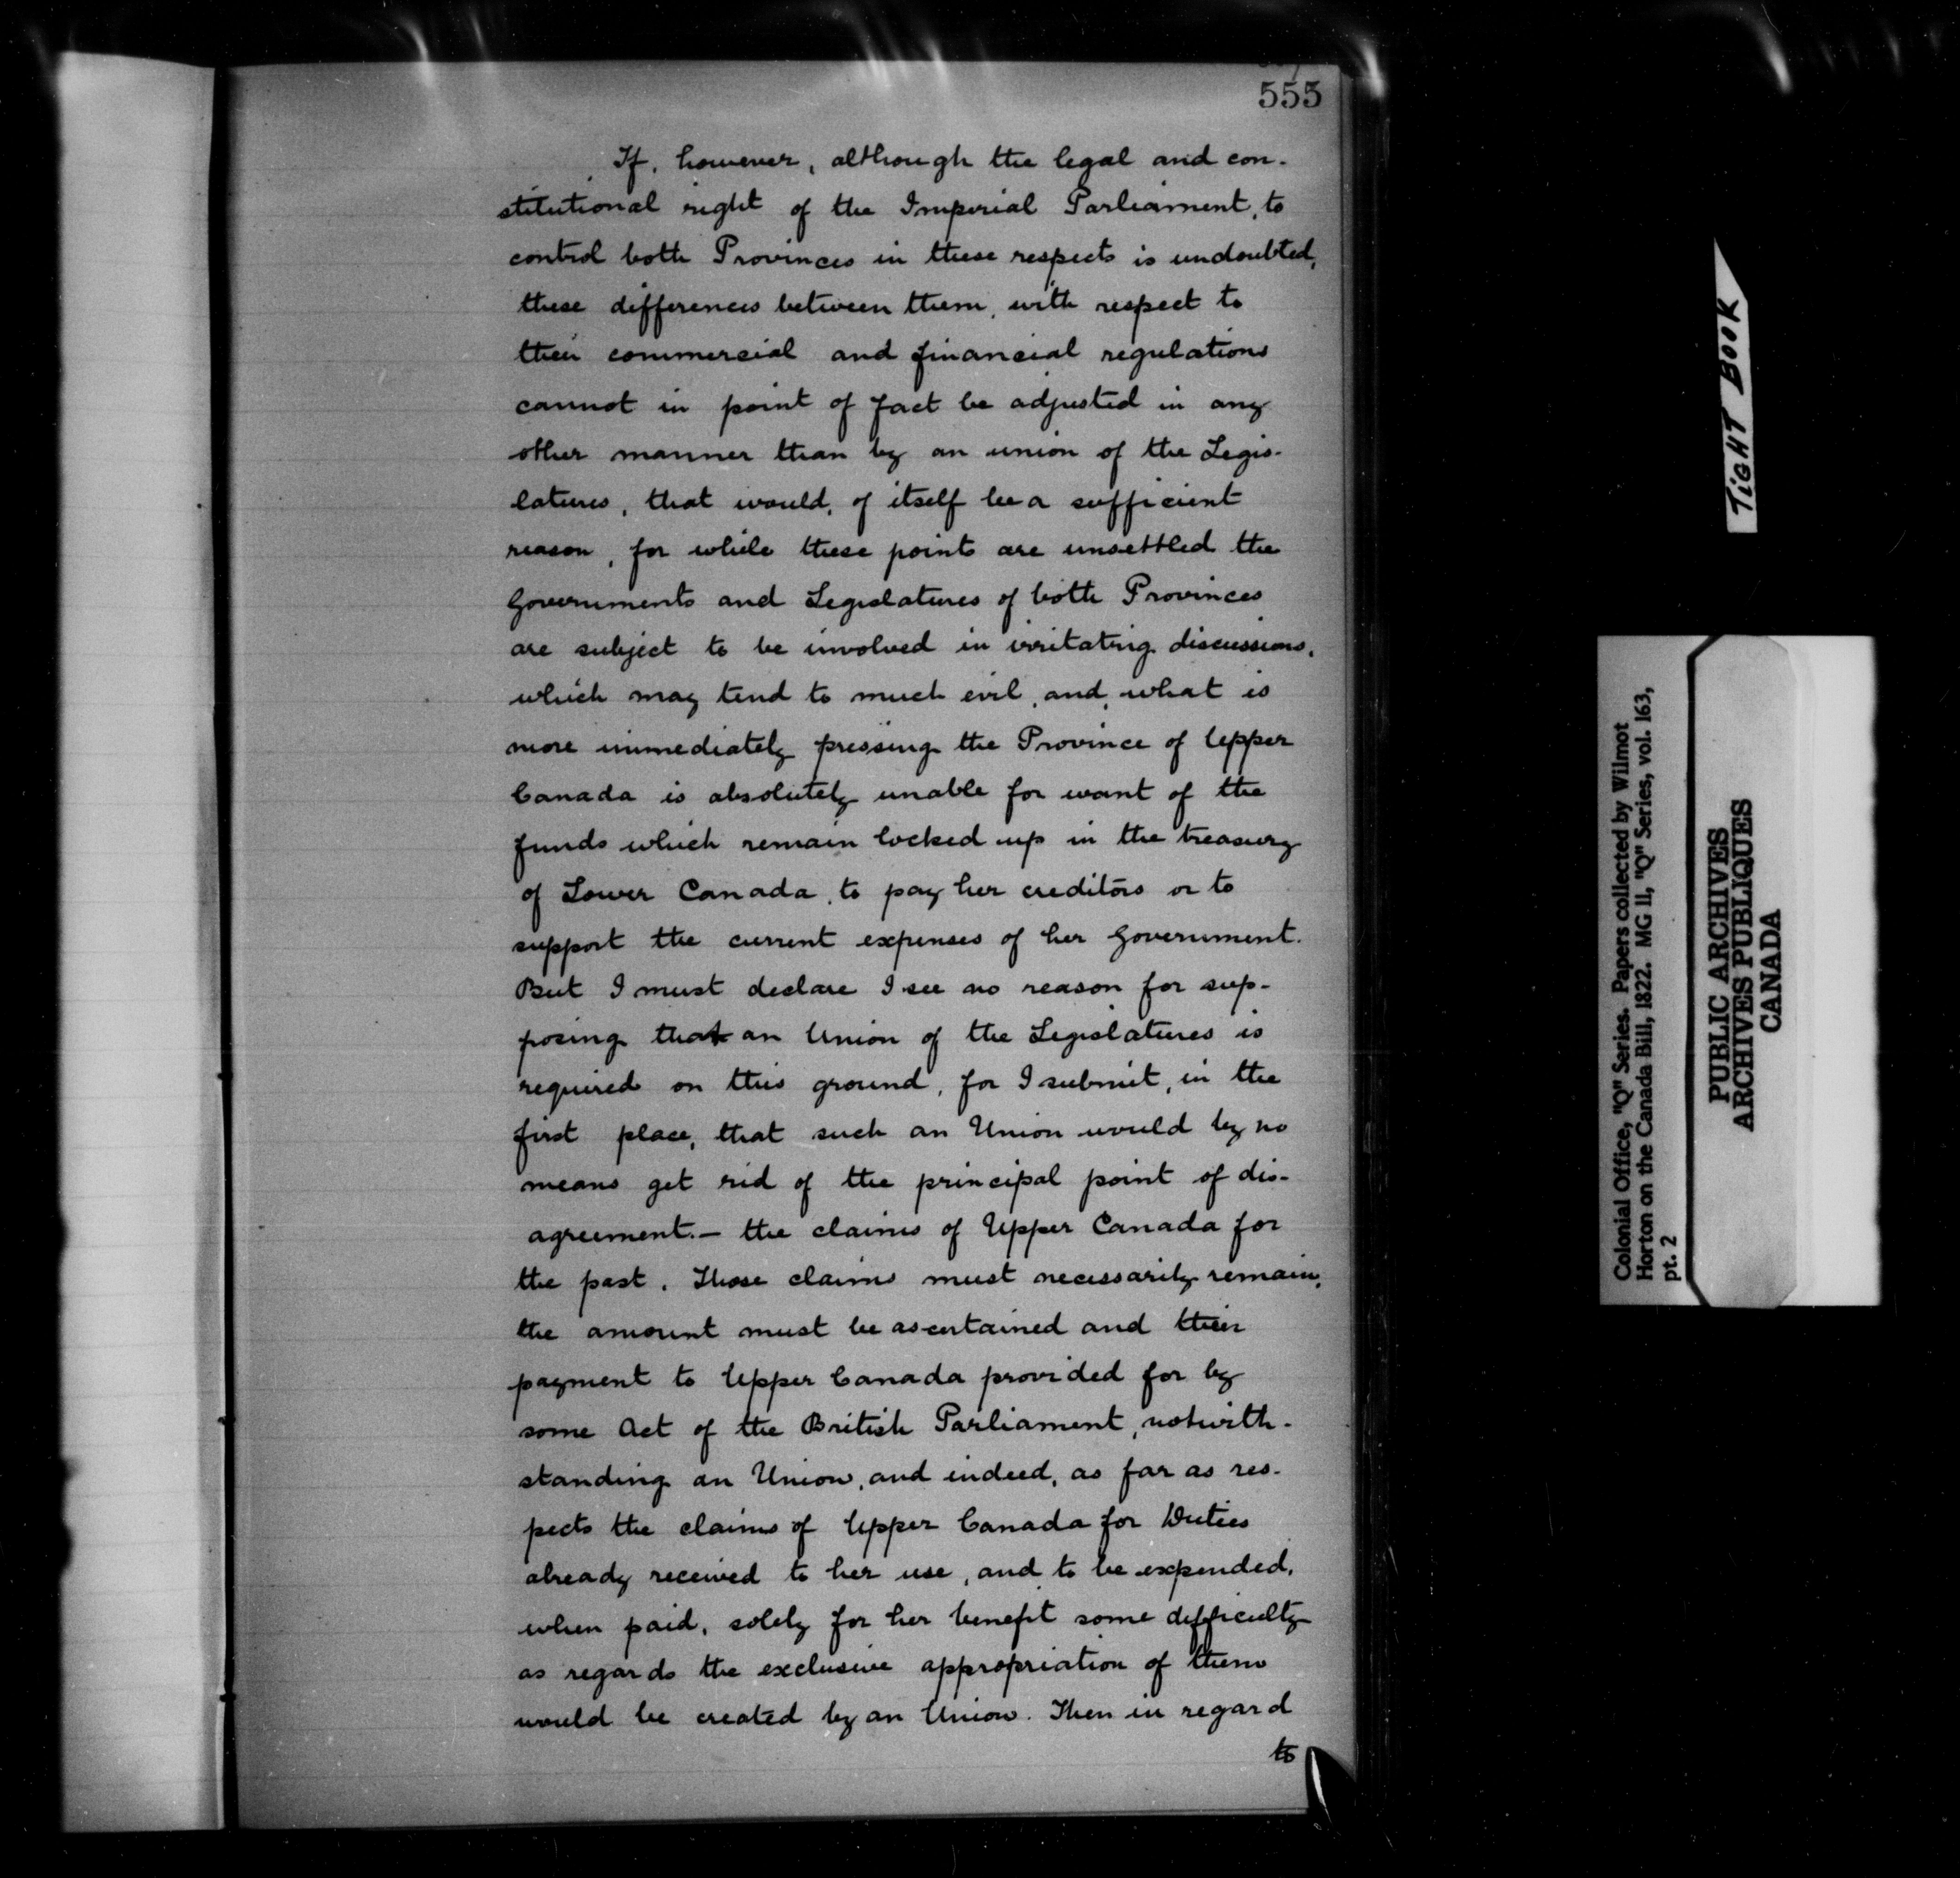 555
If, however, although the legal and con-
stitutional right of the Imperial Parliament, to
control both Provinces in these respects is undoubted,
these differences between them, with respect to
their commercial and financial regulations
cannot in point of fact be adjusted in any
other manner than by an union of the Legis-
latures, that would, of itself be a sufficient
reason, for while these points are unsettled the
Governments and Legislatures of both Provinces
are subject to be involved in irritating discussions,
which may tend to much evil, and, what is
more immediately pressing the Province of Upper
Canada is absolutely unable for want of the
funds which remain locked up in the treasury
of Lower Canada, to pay her creditors or to
support the current expenses of her Government.
But I must declare I see no reason for sup-
posing that an Union of the Legislatures is
required on this ground, for I submit, in the
first place, that such an Union would by no
means get rid of the principal point of dis-
agreement.— the claims of Upper Canada for
the past. Those claims must necessarily remain,
the amount must be ascertained and their
payment to Upper Canada provided for by
some Act of the British Parliament, notwith-
standing an Union, and indeed, as far as res-
pects the claims of Upper Canada for Duties
already received to her use, and to be expended,
when paid, solely for her benefit some difficulty
as regards the exclusive appropriation of them
would be created by an Union. Then in regard
to
TIGHT BOOK
Colonial Office, "Q" Series. Papers collected by Wilmot
Horton on the Canada Bill, 1822. MG 11, "Q" Series, vol. 163,
pt. 2
PUBLIC ARCHIVES
ARCHIVES PUBLIQUES
CANADA